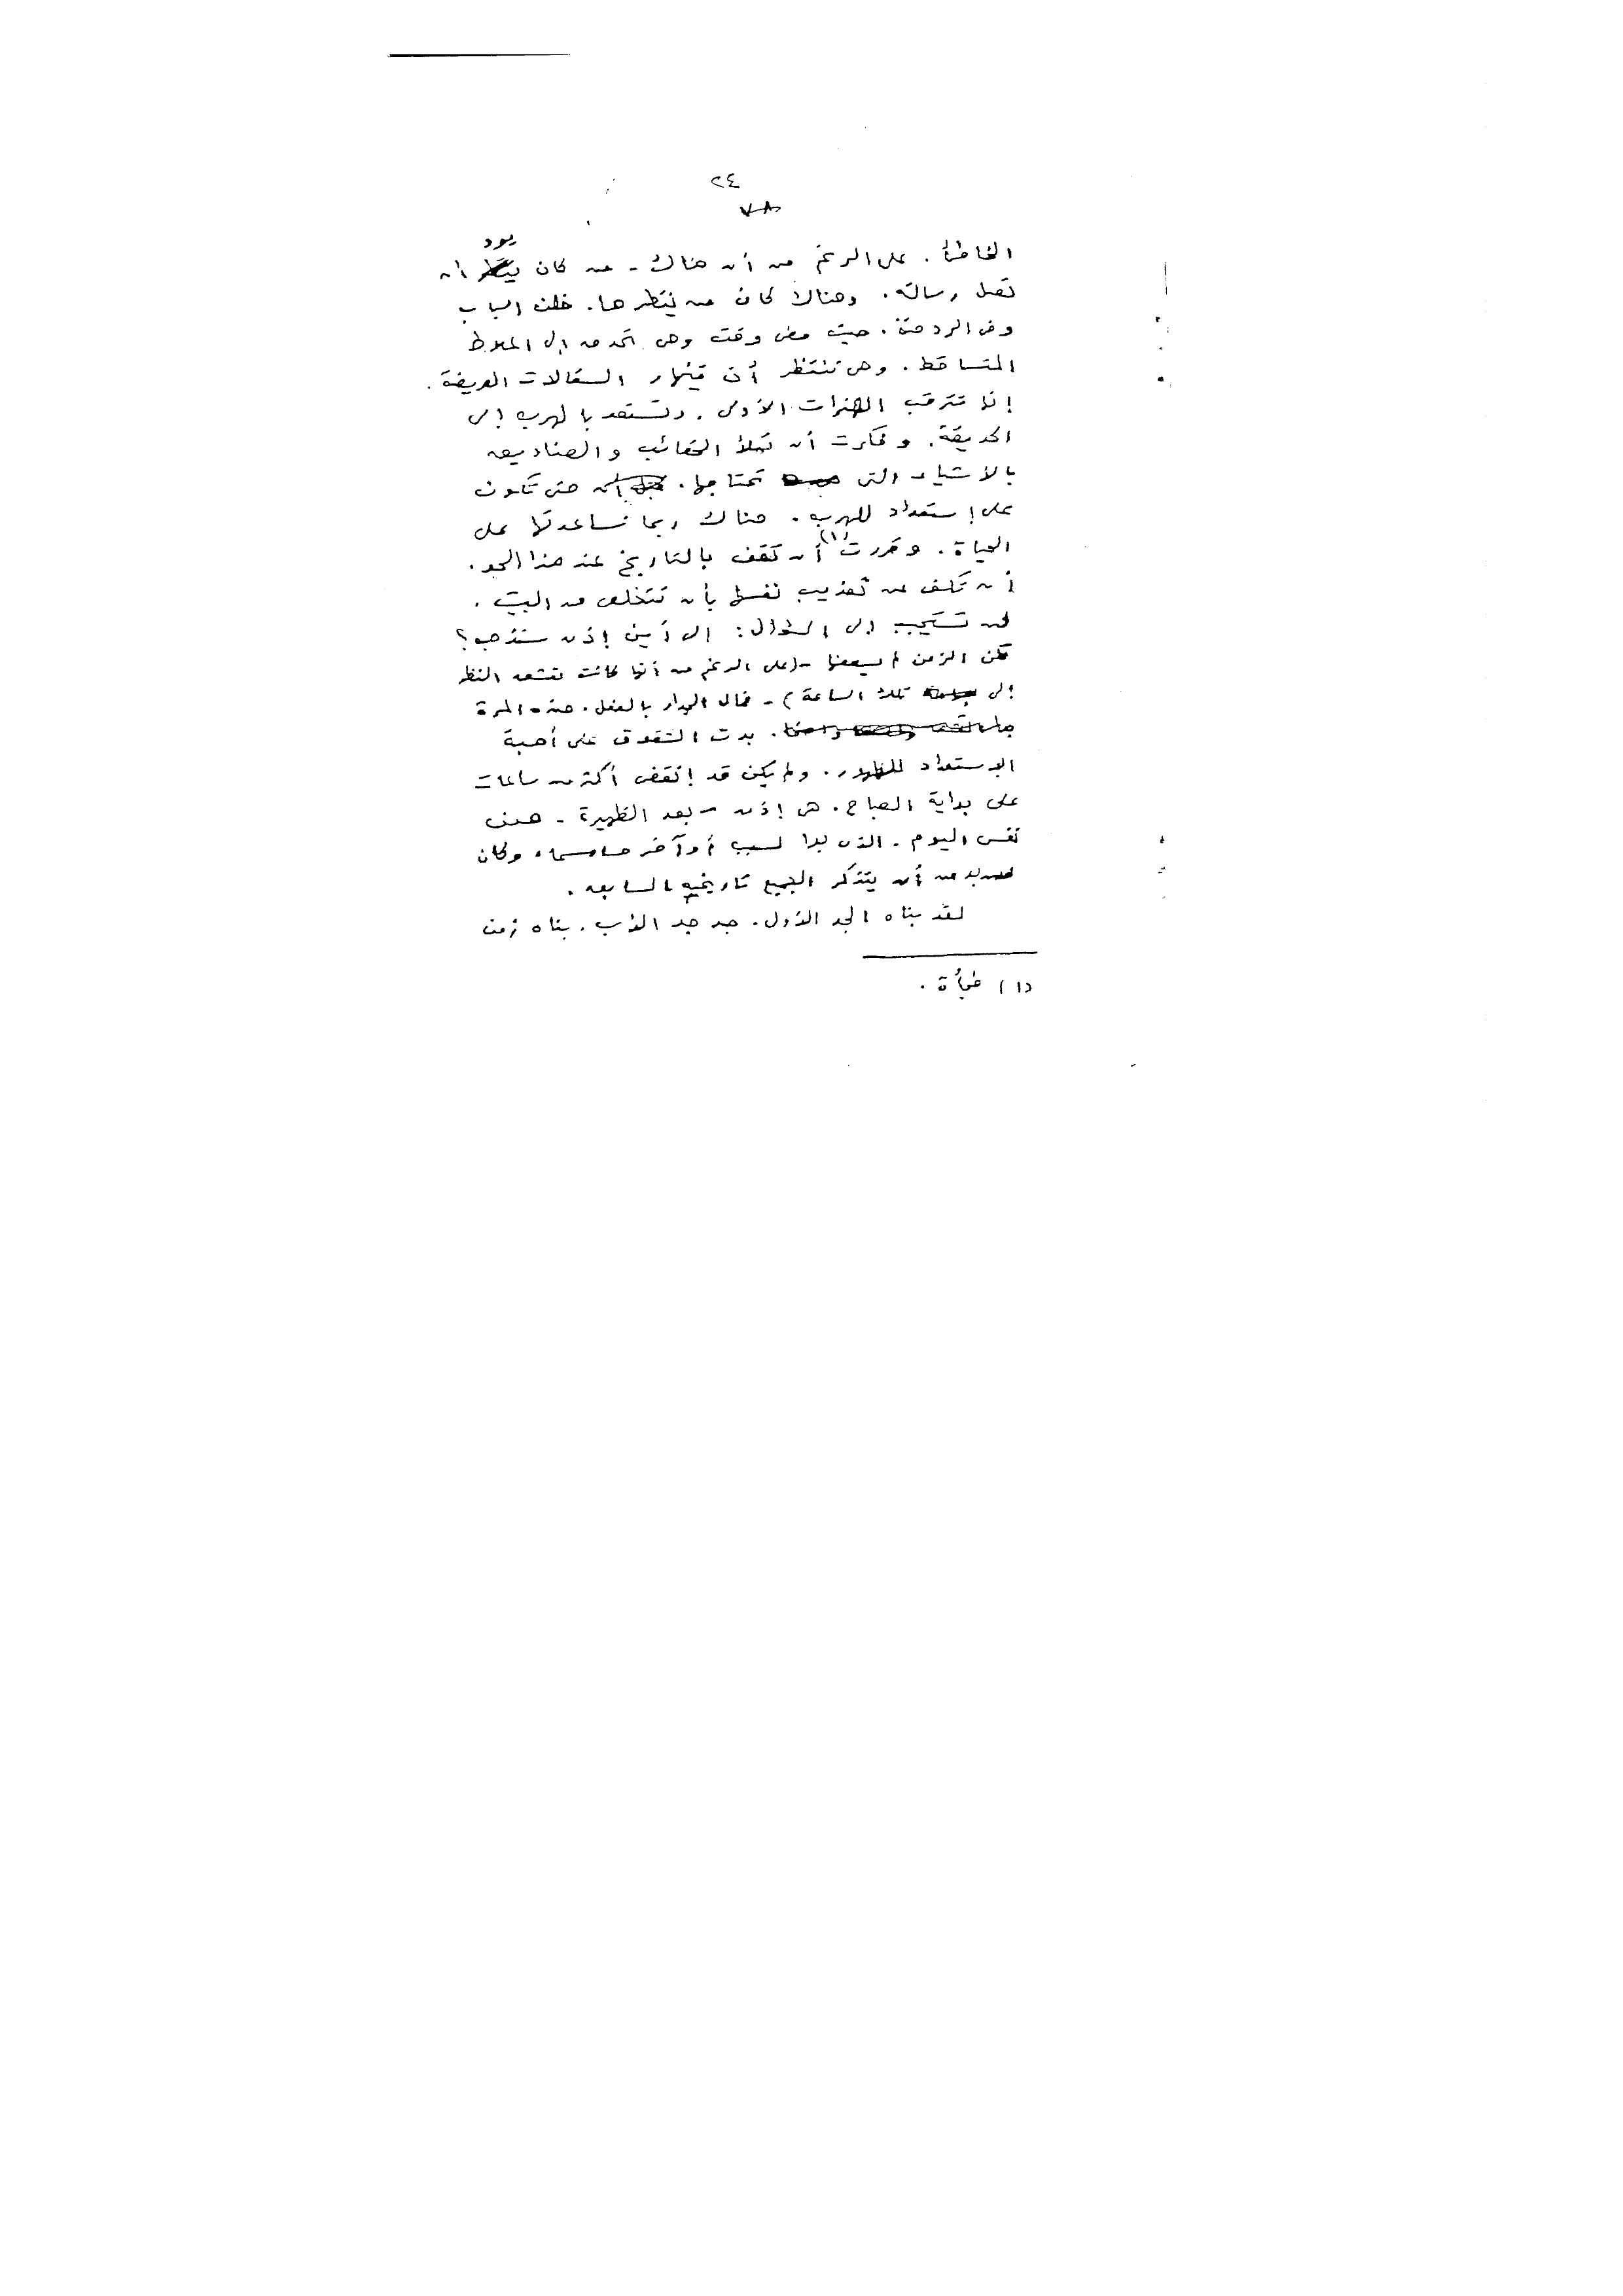 ٢٤
٧٨
يود
الخاطئ. على الرغم من أن هناك - من كان ينتظر أن
تصل رسالته. وهناك كان من ينتظرها. خلف الباب
وفى الردهة. حيث مضى وقت وهى تحدق إلى الملاط
المتساقط. وهى تنتظر أن تنهار السقالات العريضة.
إنها تترقب الهزات الأولى. وتستعد بالهرب إلى
الحديقة. وفكرت أن تملأ الحقائب والصناديق
بالأشياء التى تحتاجها. حتى تكون
على إستعداد للهرب. هناك ربما تساعدها على
الحياة. وقررت (١) أن تقف بالتاريخ عند هذا الحد.
أن تكف عن تعذيب نفسها بأن تتخلص من البيت.
لن تستجيب إلى السؤال: إلى أين إذن ستذهب؟
لكن الزمن لم يسعفها - (على الرغم من أنها كانت تنشد النظر
إلى تلك الساعة) - فمال الجدار بالفعل. هذه المرة
بدت الشقوق على أهبة
الإستعداد للظهور. ولم يكن قد إنقضى أكثر من ساعات
على بداية الصباح. هى إذن - بعد الظهيرة -
نفس اليوم. الذى بدا لسبب أو آخر حاسما. وكان
لابد من أن يتذكر الجميع تاريخهم السابق.
لقد بناه الجد الأول. جد جد الأب. بناه زمن
(١) فجأة.